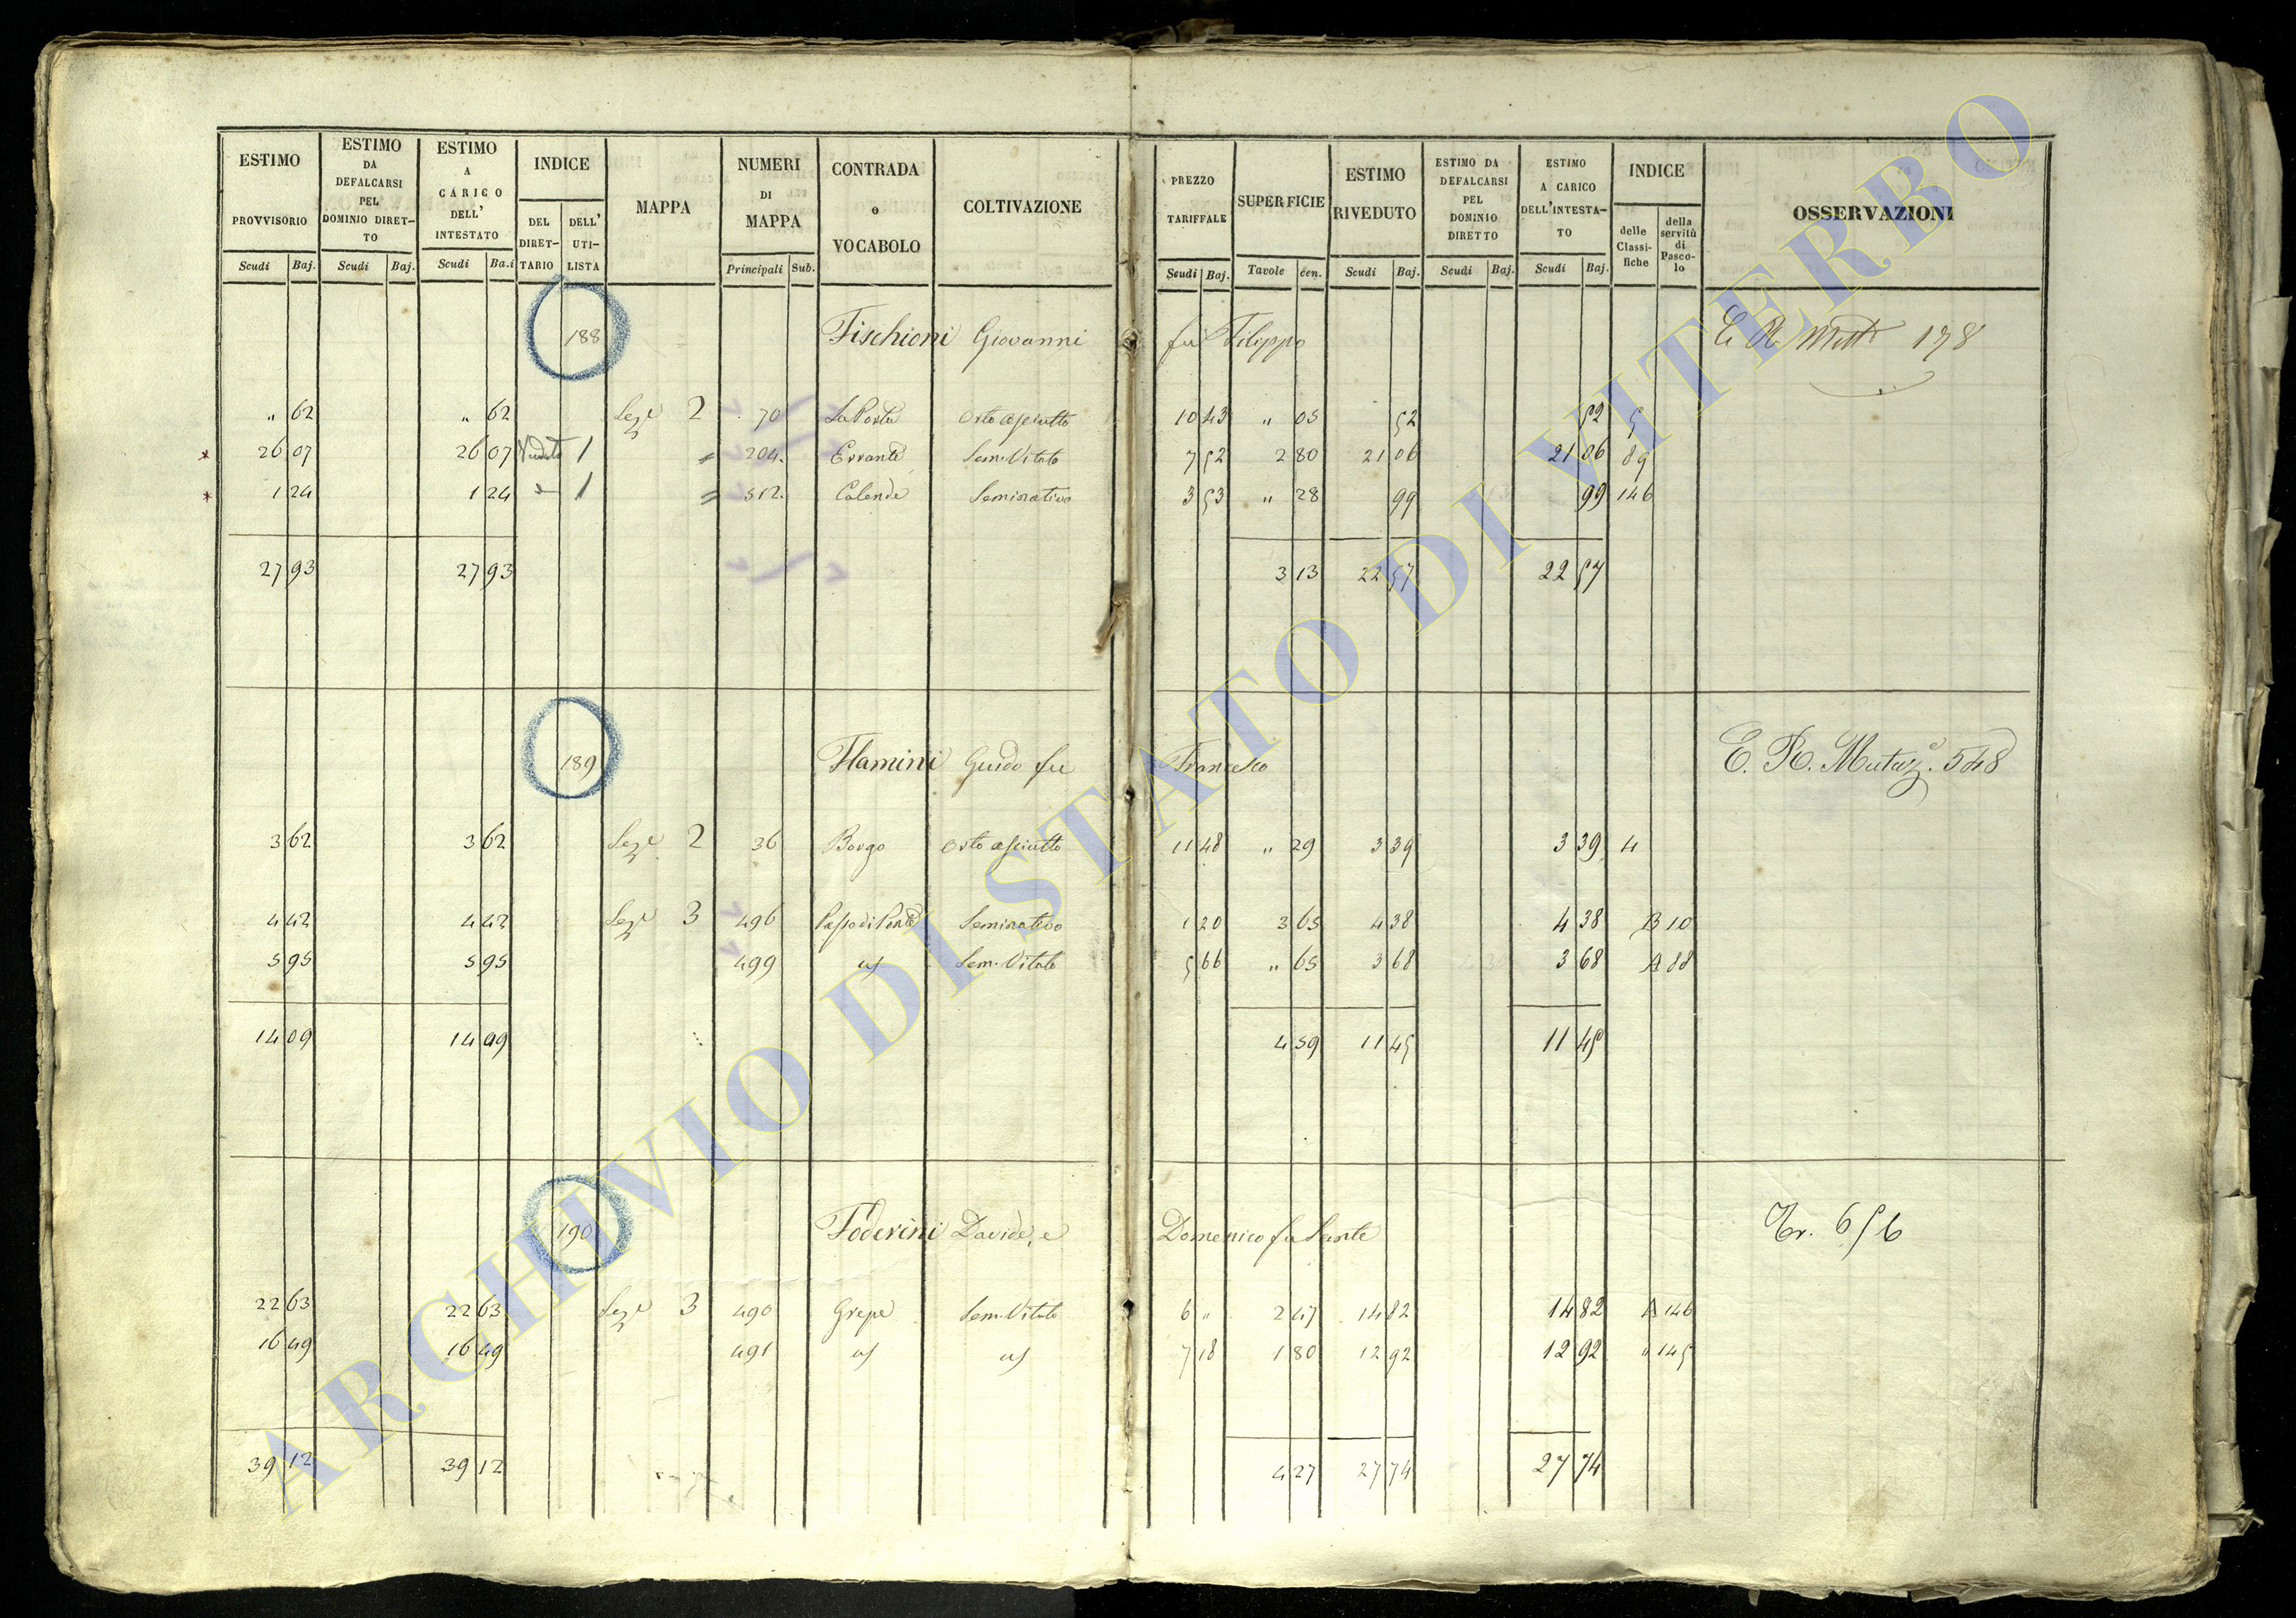 ESTIMO PROVVISORIO Scudi Baj. ESTIMO DA DEFALCARSI PEL DOMINIO DIRETTO Scudi Baj. ESTIMO A CARICO DELL' INTESTATO Scudi Ba.i INDICE DEL DIRETTARIO DELL' UTILISTA MAPPA NUMERI DI MAPPA Principali Sub. CONTRADA o VOCABOLO COLTIVAZIONE PREZZO TARIFFALE Scudi Baj. SUPERFICIE Tavole cen. ESTIMO RIVEDUTO Scudi Baj. ESTIMO DA DEFALCARSI PEL DOMINIO DIRETTO Scudi Baj. ESTIMO A CARICO DELL'INTESTATO Scudi Baj. INDICE delle Classifiche della servitù di Pascolo OSSERVAZIONI
188 Fischioni Giovanni fu Filippo 178
" 62 " 62 Sez.e 2 70 La Posta Orto asciutto 10 43 " 05 52 52 5
26 07 26 07 1 = 204. Errante Sem. Vitato 7 52 2 80 21 06 21 06 89
1 24 1 24 1 = 512. Calende Seminativo 3 53 " 28 99 99 146
27 93 27 93 3 13 22 57 22 57
189 Flamini Guido fu Francesco E. R. Mutaz.e 548
3 62 3 62 Sez.e 2 36 Borgo Orto asciutto 11 48 " 29 3 39 3 39 4
4 42 4 42 Sez.e 3 496 Passo di Ponte Seminativo 1 20 3 65 4 38 4 38 B 10
5 95 5 95 499 us Sem. Vitato 5 66 " 65 3 68 3 68 A 88
14 09 14 09 4 59 11 45 11 45
190 Foderini Davide, e Domenico fu Sante Tr. 656
22 63 22 63 Sez.e 3 490 Grepe Sem. Vitato 6 " 2 47 14 82 14 82 A 146
16 49 16 49 491 us us 7 18 1 80 12 92 12 92 " 145
39 12 39 12 4 27 27 74 27 74
ARCHIVIO DI STATO DI VITERBO